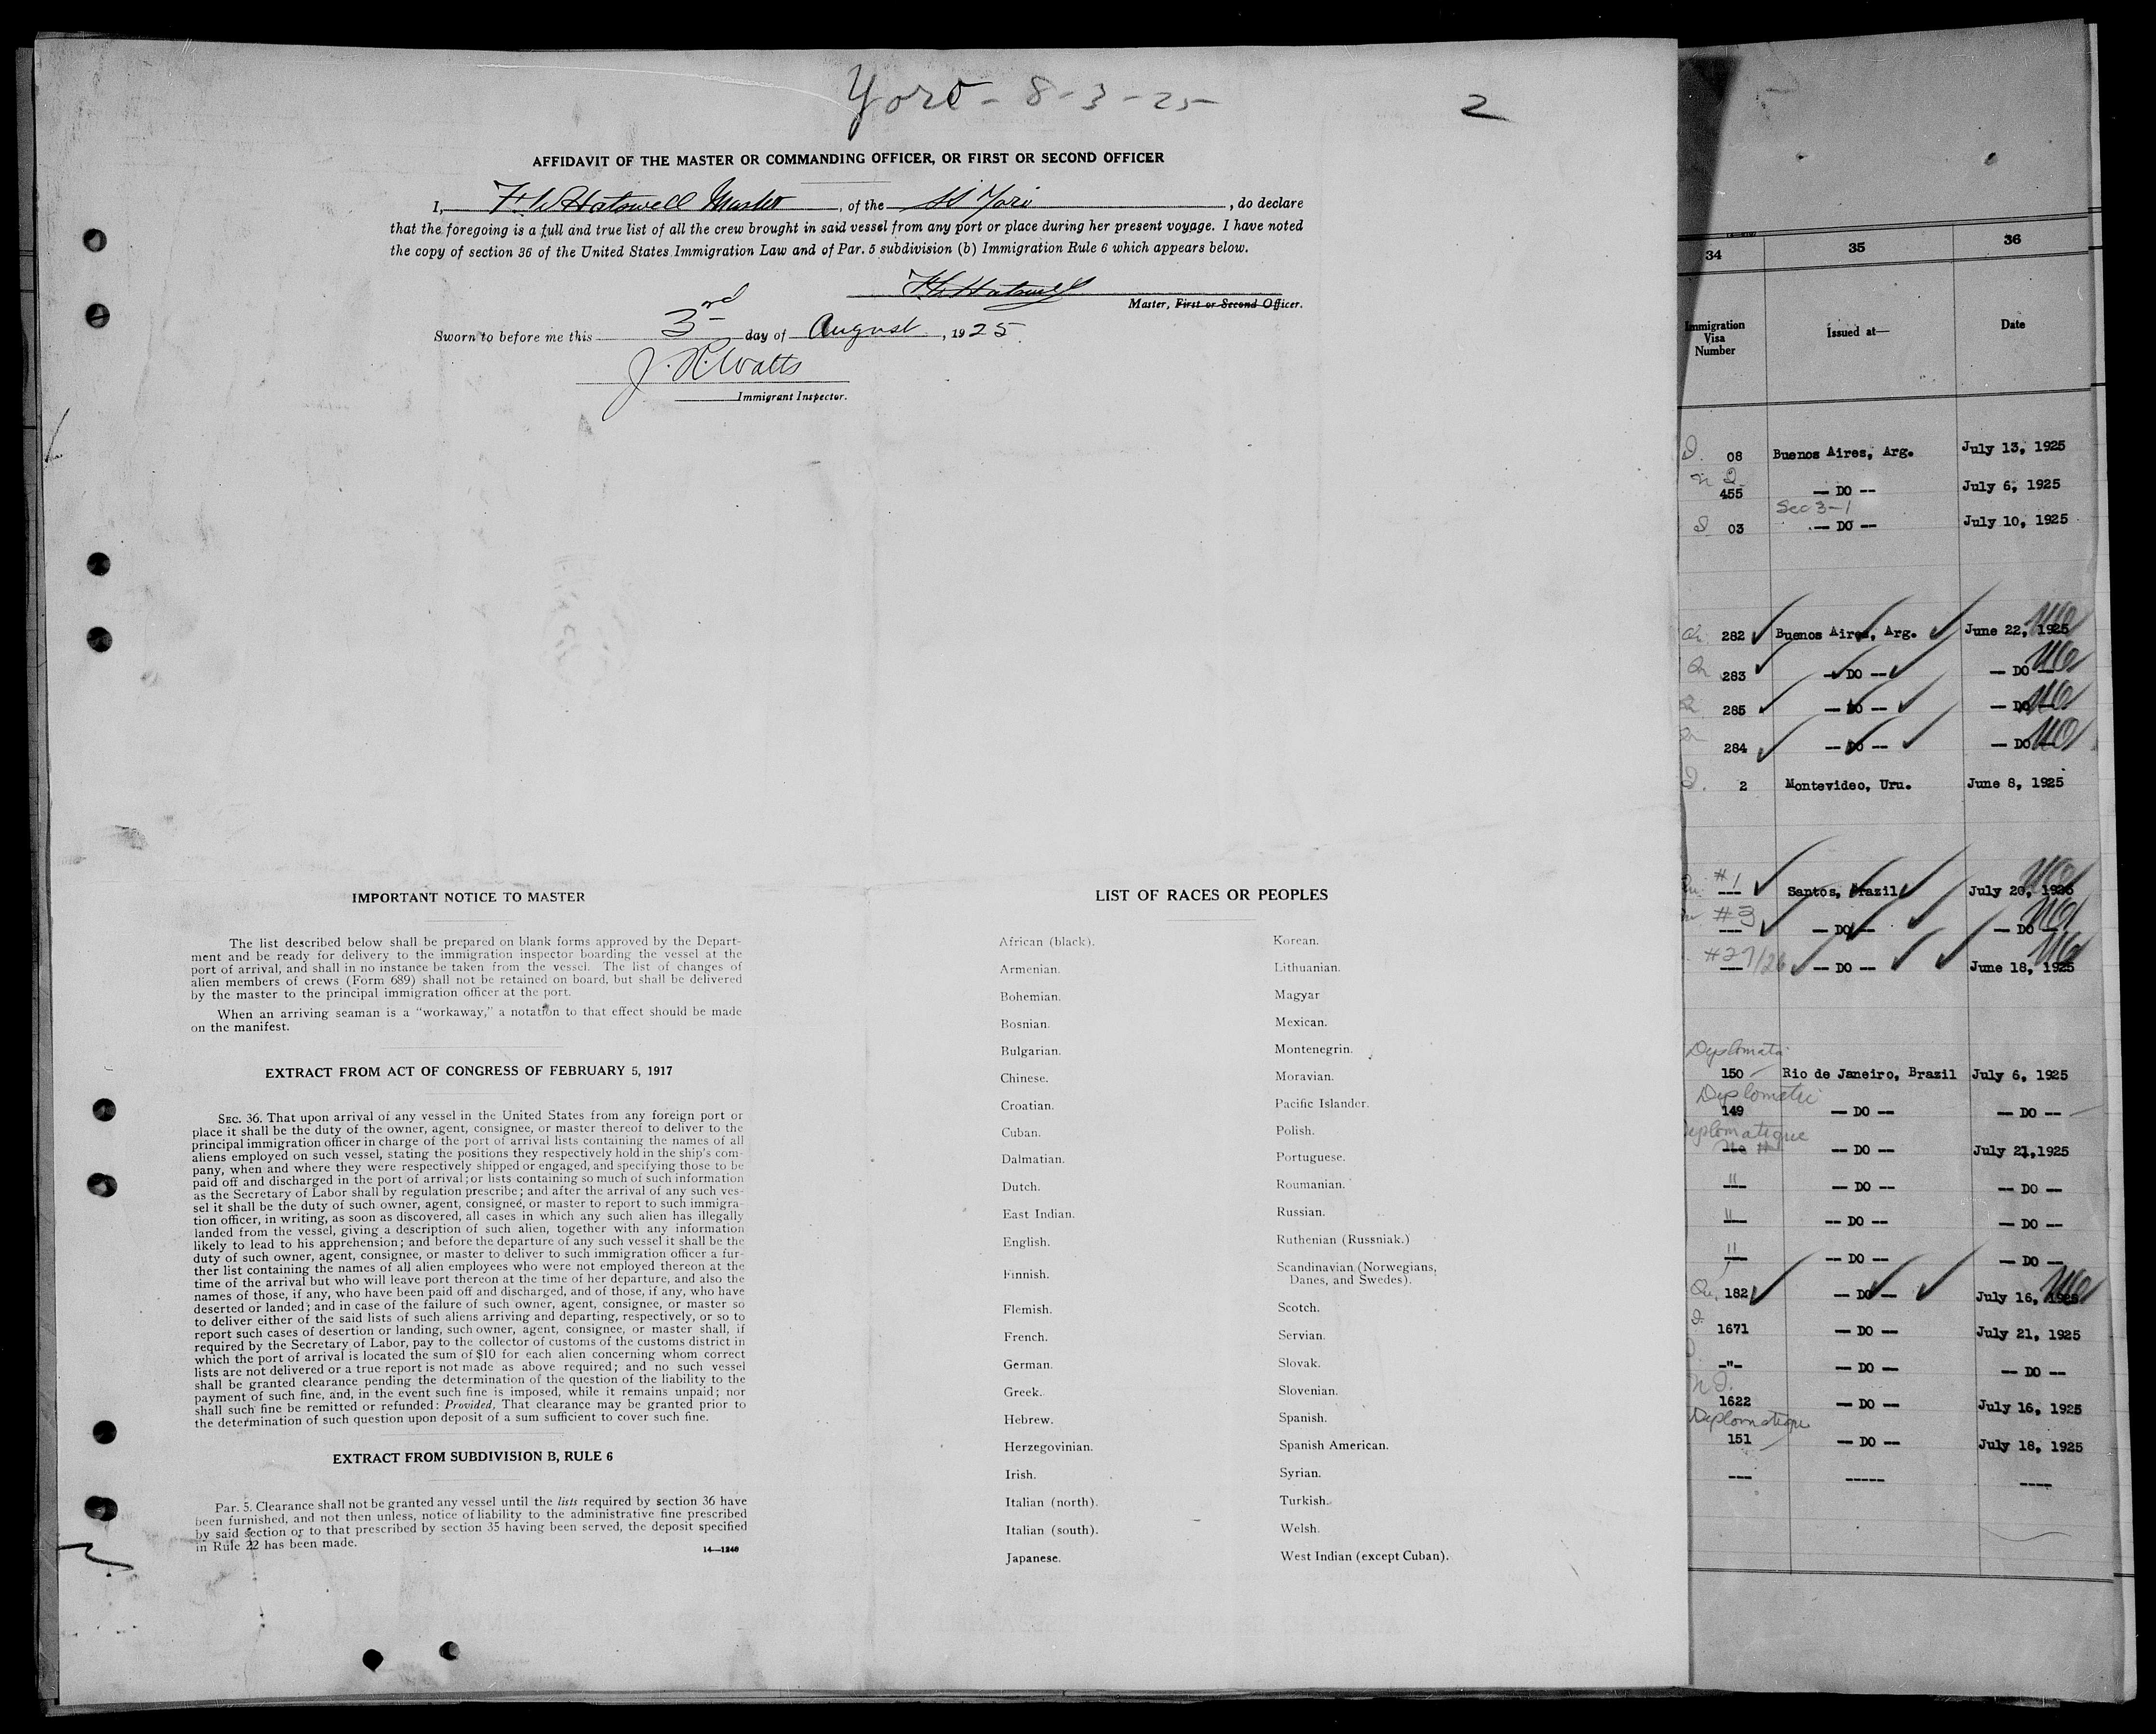 Yoro - 8-3-25
2
AFFIDAVIT OF THE MASTER OR COMMANDING OFFICER, OR FIRST OR SECOND OFFICER
I, F. W Hatswell Master, of the SS Yoro, do declare
that the foregoing is a full and true list of all the crew brought in said vessel from any port or place during her present voyage. I have noted
the copy of section 36 of the United States Immigration Law and of Par. 5 subdivision (b) Immigration Rule 6 which appears below.
F W Hatswell
Master, First or Second Officer.
Sworn to before me this 3rd day of August, 1925.
J. R. Watts
Immigrant Inspector.
IMPORTANT NOTICE TO MASTER
The list described below shall be prepared on blank forms approved by the Depart-
ment and be ready for delivery to the immigration inspector boarding the vessel at the
port of arrival, and shall in no instance be taken from the vessel. The list of changes of
alien members of crews (Form 689) shall not be retained on board, but shall be delivered
by the master to the principal immigration officer at the port.
When an arriving seaman is a "workaway," a notation to that effect should be made
on the manifest.
EXTRACT FROM ACT OF CONGRESS OF FEBRUARY 5, 1917
SEC. 36. That upon arrival of any vessel in the United States from any foreign port or
place it shall be the duty of the owner, agent, consignee, or master thereof to deliver to the
principal immigration officer in charge of the port of arrival lists containing the names of all
aliens employed on such vessel, stating the positions they respectively hold in the ship's com-
pany, when and where they were respectively shipped or engaged, and specifying those to be
paid off and discharged in the port of arrival; or lists containing so much of such information
as the Secretary of Labor shall by regulation prescribe; and after the arrival of any such ves-
sel it shall be the duty of such owner, agent, consignee, or master to report to such immigra-
tion officer, in writing, as soon as discovered, all cases in which any such alien has illegally
landed from the vessel, giving a description of such alien, together with any information
likely to lead to his apprehension; and before the departure of any such vessel it shall be the
duty of such owner, agent, consignee, or master to deliver to such immigration officer a fur-
ther list containing the names of all alien employees who were not employed thereon at the
time of the arrival but who will leave port thereon at the time of her departure, and also the
names of those, if any, who have been paid off and discharged, and of those, if any, who have
deserted or landed; and in case of the failure of such owner, agent, consignee, or master so
to deliver either of the said lists of such aliens arriving and departing, respectively, or so to
report such cases of desertion or landing, such owner, agent, consignee, or master shall, if
required by the Secretary of Labor, pay to the collector of customs of the customs district in
which the port of arrival is located the sum of $10 for each alien concerning whom correct
lists are not delivered or a true report is not made as above required; and no such vessel
shall be granted clearance pending the determination of the question of the liability to the
payment of such fine, and, in the event such fine is imposed, while it remains unpaid; nor
shall such fine be remitted or refunded: Provided, That clearance may be granted prior to
the determination of such question upon deposit of a sum sufficient to cover such fine.
EXTRACT FROM SUBDIVISION B, RULE 6
Par. 5. Clearance shall not be granted any vessel until the lists required by section 36 have
been furnished, and not then unless, notice of liability to the administrative fine prescribed
by said section or to that prescribed by section 35 having been served, the deposit specified
in Rule 22 has been made.
14—1240
LIST OF RACES OR PEOPLES
African (black).
Armenian.
Bohemian.
Bosnian.
Bulgarian.
Chinese.
Croatian.
Cuban.
Dalmatian.
Dutch.
East Indian.
English.
Finnish.
Flemish.
French.
German.
Greek.
Hebrew.
Herzegovinian.
Irish.
Italian (north).
Italian (south).
Japanese.
Korean.
Lithuanian.
Magyar
Mexican.
Montenegrin.
Moravian.
Pacific Islander.
Polish.
Portuguese.
Roumanian.
Russian.
Ruthenian (Russniak.)
Scandinavian (Norwegians,
Danes, and Swedes).
Scotch.
Servian.
Slovak.
Slovenian.
Spanish.
Spanish American.
Syrian.
Turkish.
Welsh.
West Indian (except Cuban).
34 35 36
Immigration
Visa
Number
Issued at—
Date
08 Buenos Aires, Arg. July 13, 1925
455 — DO -- July 6, 1925
Sec 3-1
03 — DO -- July 10, 1925
282 Buenos Aires, Arg. June 22, 1925
283 — DO -- — DO —
285 — DO -- — DO —
284 -- DO -- — DO —
2 Montevideo, Uru. June 8, 1925
#1 Santos, Brazil July 20, 1925
#3 — DO — — DO —
#27/26 -- DO -- June 18, 1925
Diplomatic
150 Rio de Janeiro, Brazil July 6, 1925
Diplomatic
149 -- DO -- -- DO --
Diplomatique
-- DO -- July 21,1925
" -- DO -- -- DO —
" -- DO -- -- DO —
" -- DO -- -- DO —
Qu. 182 — DO — July 16, 1925
1671 -- DO — July 21, 1925
-"- -- DO — -- DO --
N I.
1622 -- DO — July 16, 1925
Diplomatique
151 -- DO -- July 18, 1925
--- ----- ----